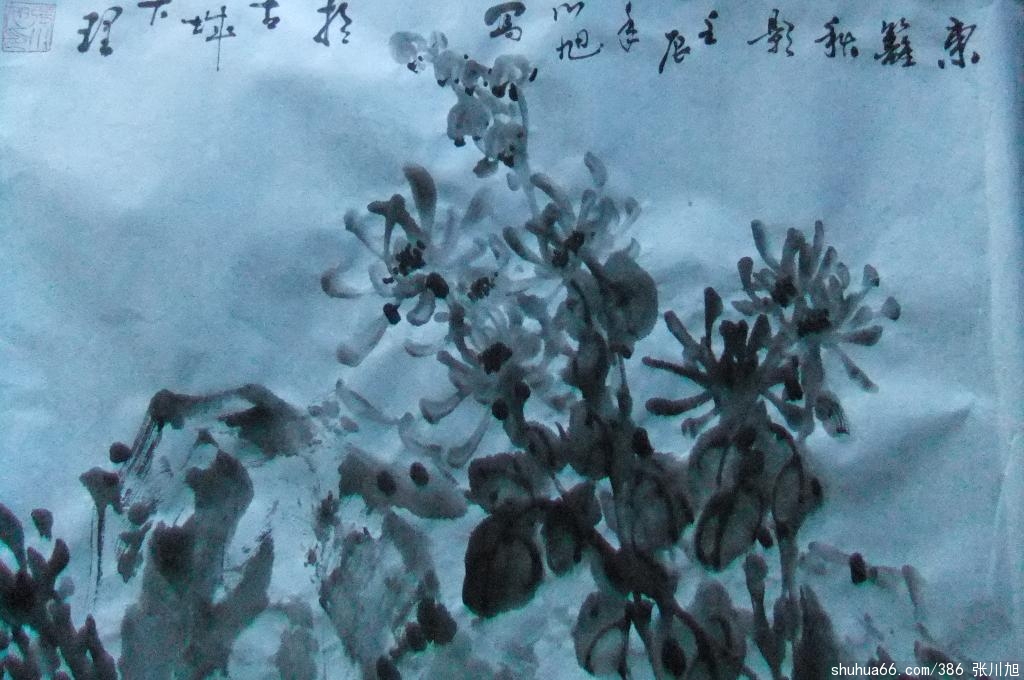 東籬秋影壬辰年川旭寫於古城下理
shuhua66.com/386 张川旭